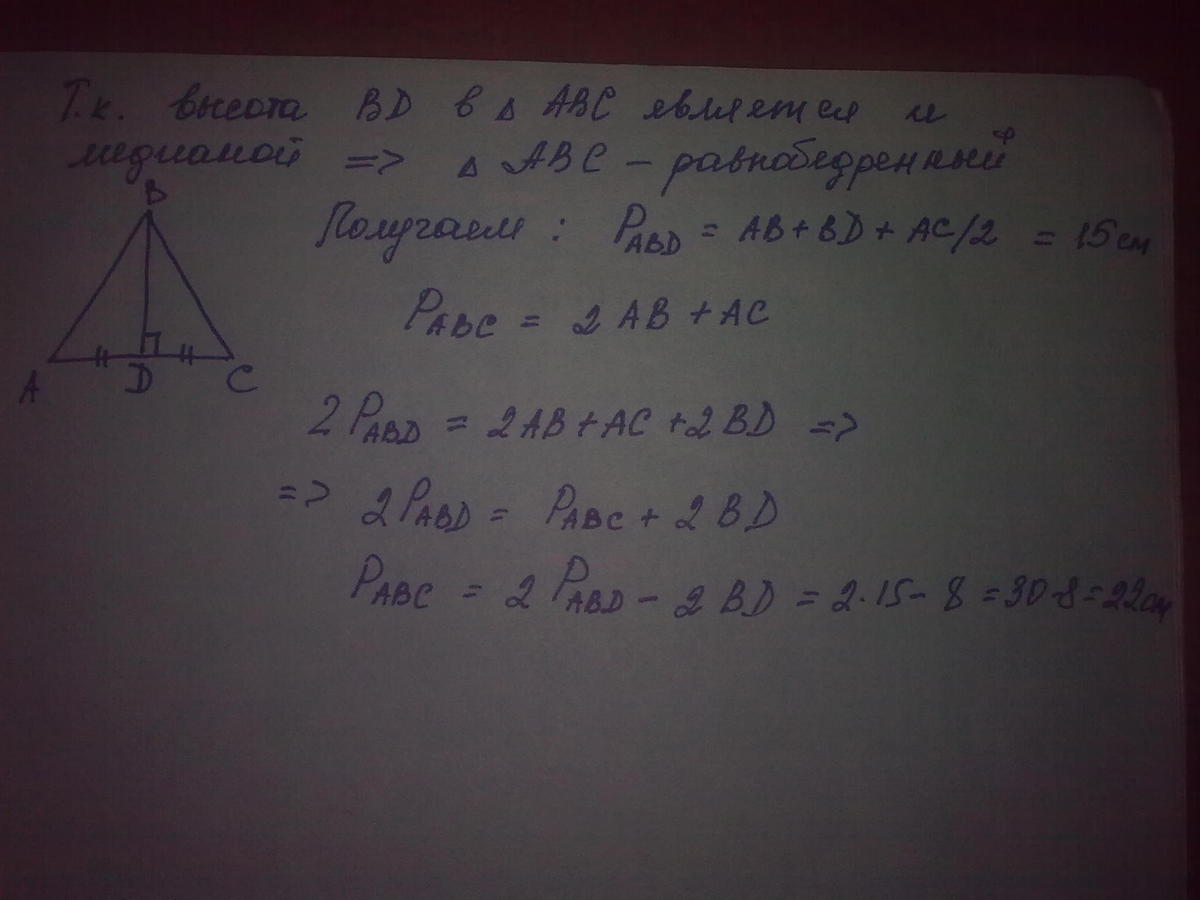 Т.к. высота BD в △ ABC является и
медианой => △ ABC – равнобедренный
B
A D C
Получаем : P_ABD = AB + BD + AC/2 = 15 см
P_ABC = 2 AB + AC
2 P_ABD = 2AB + AC + 2 BD =>
=> 2 P_ABD = P_ABC + 2 BD
P_ABC = 2 P_ABD – 2 BD = 2·15 – 8 = 30-8 = 22см